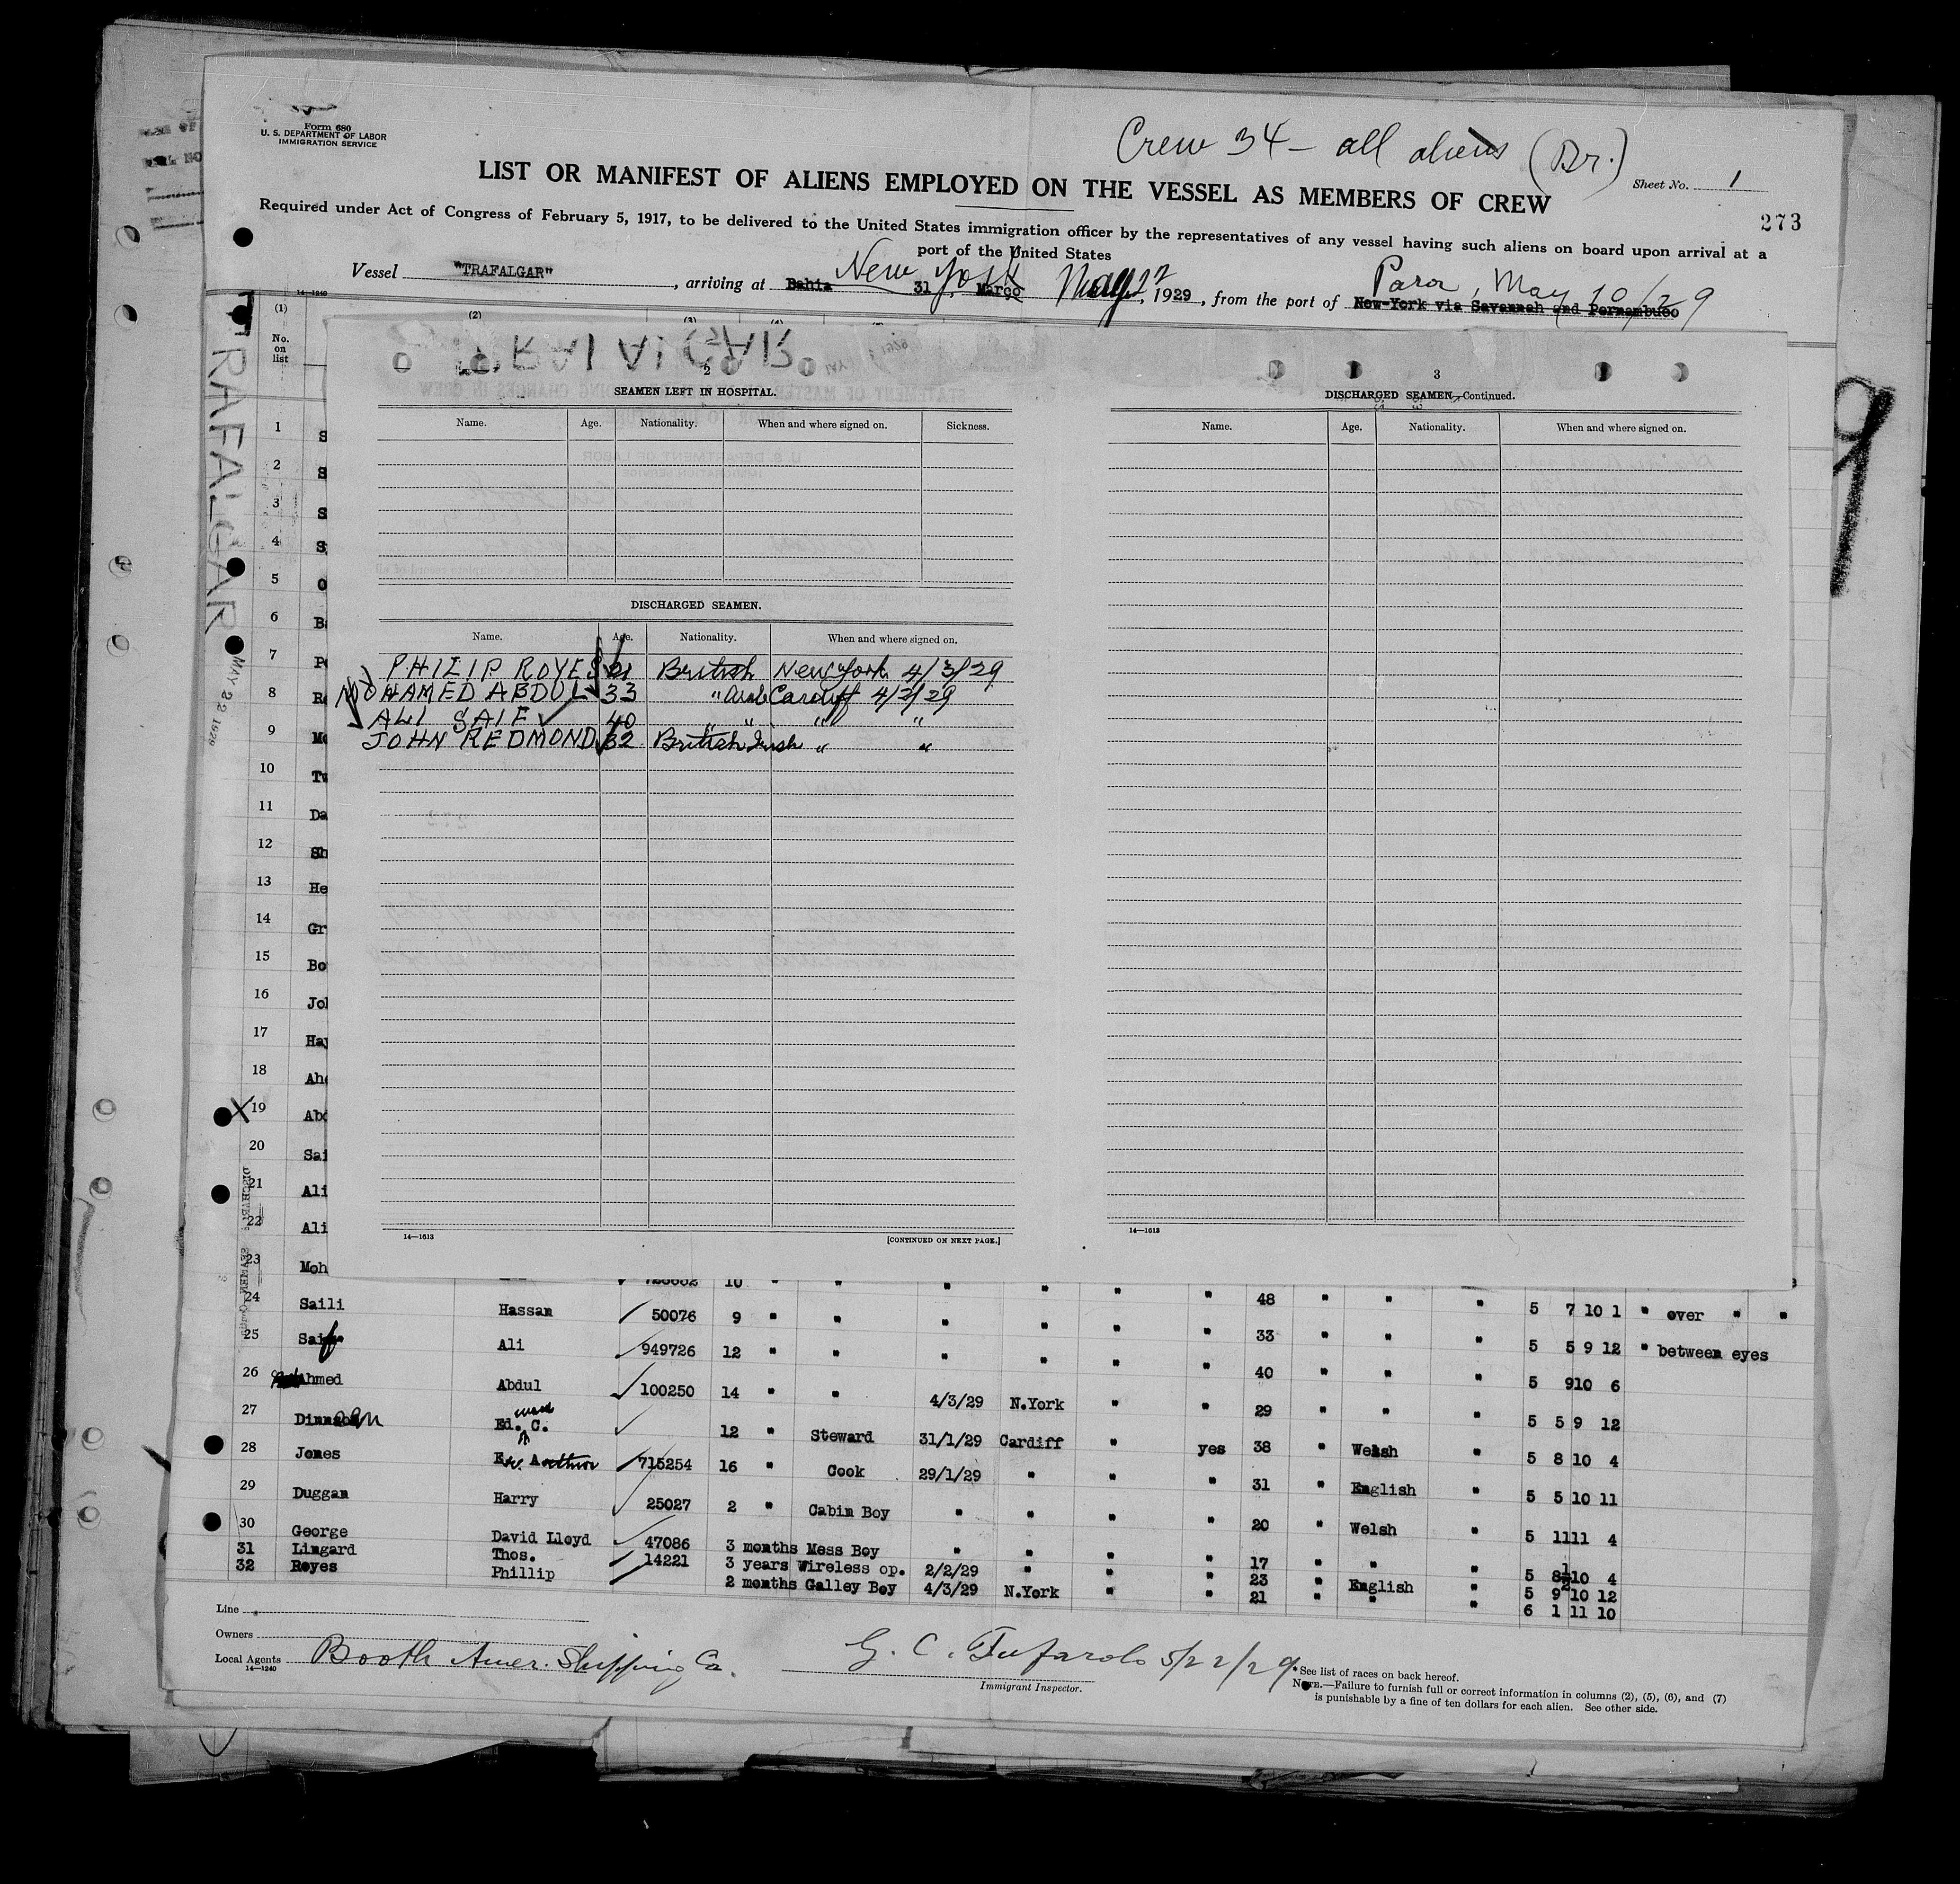 Form 680
U. S. DEPARTMENT OF LABOR
IMMIGRATION SERVICE
Crew 34 – all aliens (Br.)
LIST OR MANIFEST OF ALIENS EMPLOYED ON THE VESSEL AS MEMBERS OF CREW
Sheet No. 1
273
Required under Act of Congress of February 5, 1917, to be delivered to the United States immigration officer by the representatives of any vessel having such aliens on board upon arrival at a
port of the United States
Vessel "TRAFALGAR", arriving at Bahia New York 31, Março May 22, 1929, from the port of New-York via Savannah and Pernambuco Para, May 10/29
14—1240
(1) (2) (3) (4)
No. on list
TRAFALGAR
MAY 22 1929
TRAFALGAR
2
SEAMEN LEFT IN HOSPITAL.
Name. Age. Nationality. When and where signed on. Sickness.
DISCHARGED SEAMEN.
Name. Age. Nationality. When and where signed on.
PHILIP ROYES 21 British New York 4/3/29
MOHAMED ABDUL 33 " Arab Cardiff 4/2/29
ALI SAIF 40 " " " "
JOHN REDMOND 32 British Irish " "
14—1613
[CONTINUED ON NEXT PAGE.]
3
DISCHARGED SEAMEN—Continued.
Name. Age. Nationality. When and where signed on.
14—1613
1 S
2 S
3 S
4 S
5 O
6 Ba
7 Po
8 Ro
9 Mo
10 Tw
11 Da
12 Sh
13 He
14 Gr
15 Bo
16 Joh
17 Hay
18 Ahe
X 19 Abd
20 Sai
21 Ali
22 Ali
23 Moh 10 " " " " " "
24 Saili Hassan 50076 9 " " " " " " 48 " " " 5 7 10 1 " over " "
25 Saif Ali 949726 12 " " " " " " 33 " " " 5 5 9 12 " between eyes
26 Ahmed Abdul 100250 14 " " 4/3/29 N.York " " 40 " " " 5 9 10 6
27 Ed. C. 12 " Steward 31/1/29 Cardiff " yes 29 " " " 5 5 9 12
28 Jones Arthur 715254 16 " Cook 29/1/29 " " " 38 " Welsh " 5 8 10 4
29 Duggan Harry 25027 2 " Cabin Boy " " " " 31 " English " 5 5 10 11
30 George David Lloyd 47086 3 months Mess Boy " " " " 20 " Welsh " 5 11 11 4
31 Lingard Thos. 14221 3 years Wireless op. 2/2/29 " " " 17 " " " 5 8½ 10 4
32 Royes Phillip 2 months Galley Boy 4/3/29 N.York " " 23 " English " 5 9 10 12
21 " " " 6 1 11 10
Line
Owners
Local Agents Booth Amer. Shipping Co.
14—1240
G. C. Tufarolo 5/22/29
Immigrant Inspector.
* See list of races on back hereof.
NOTE.—Failure to furnish full or correct information in columns (2), (5), (6), and (7)
is punishable by a fine of ten dollars for each alien. See other side.